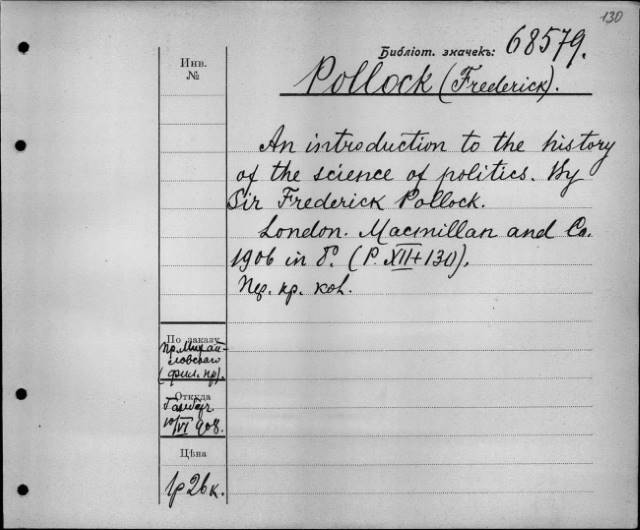 130
Библіот. значекъ: 68579.
Инв.
№
Pollock (Frederick).
An introduction to the history
of the science of politics. By
Sir Frederick Pollock.
London. Macmillan and Co.
1906 in 8°. (P. XII+130).
Пер. кр. кол.
По заказу
Пр. Михай-
ловскаго
(фил. пр).
Откуда
10/VI 908.
Цѣна
1р 26к.